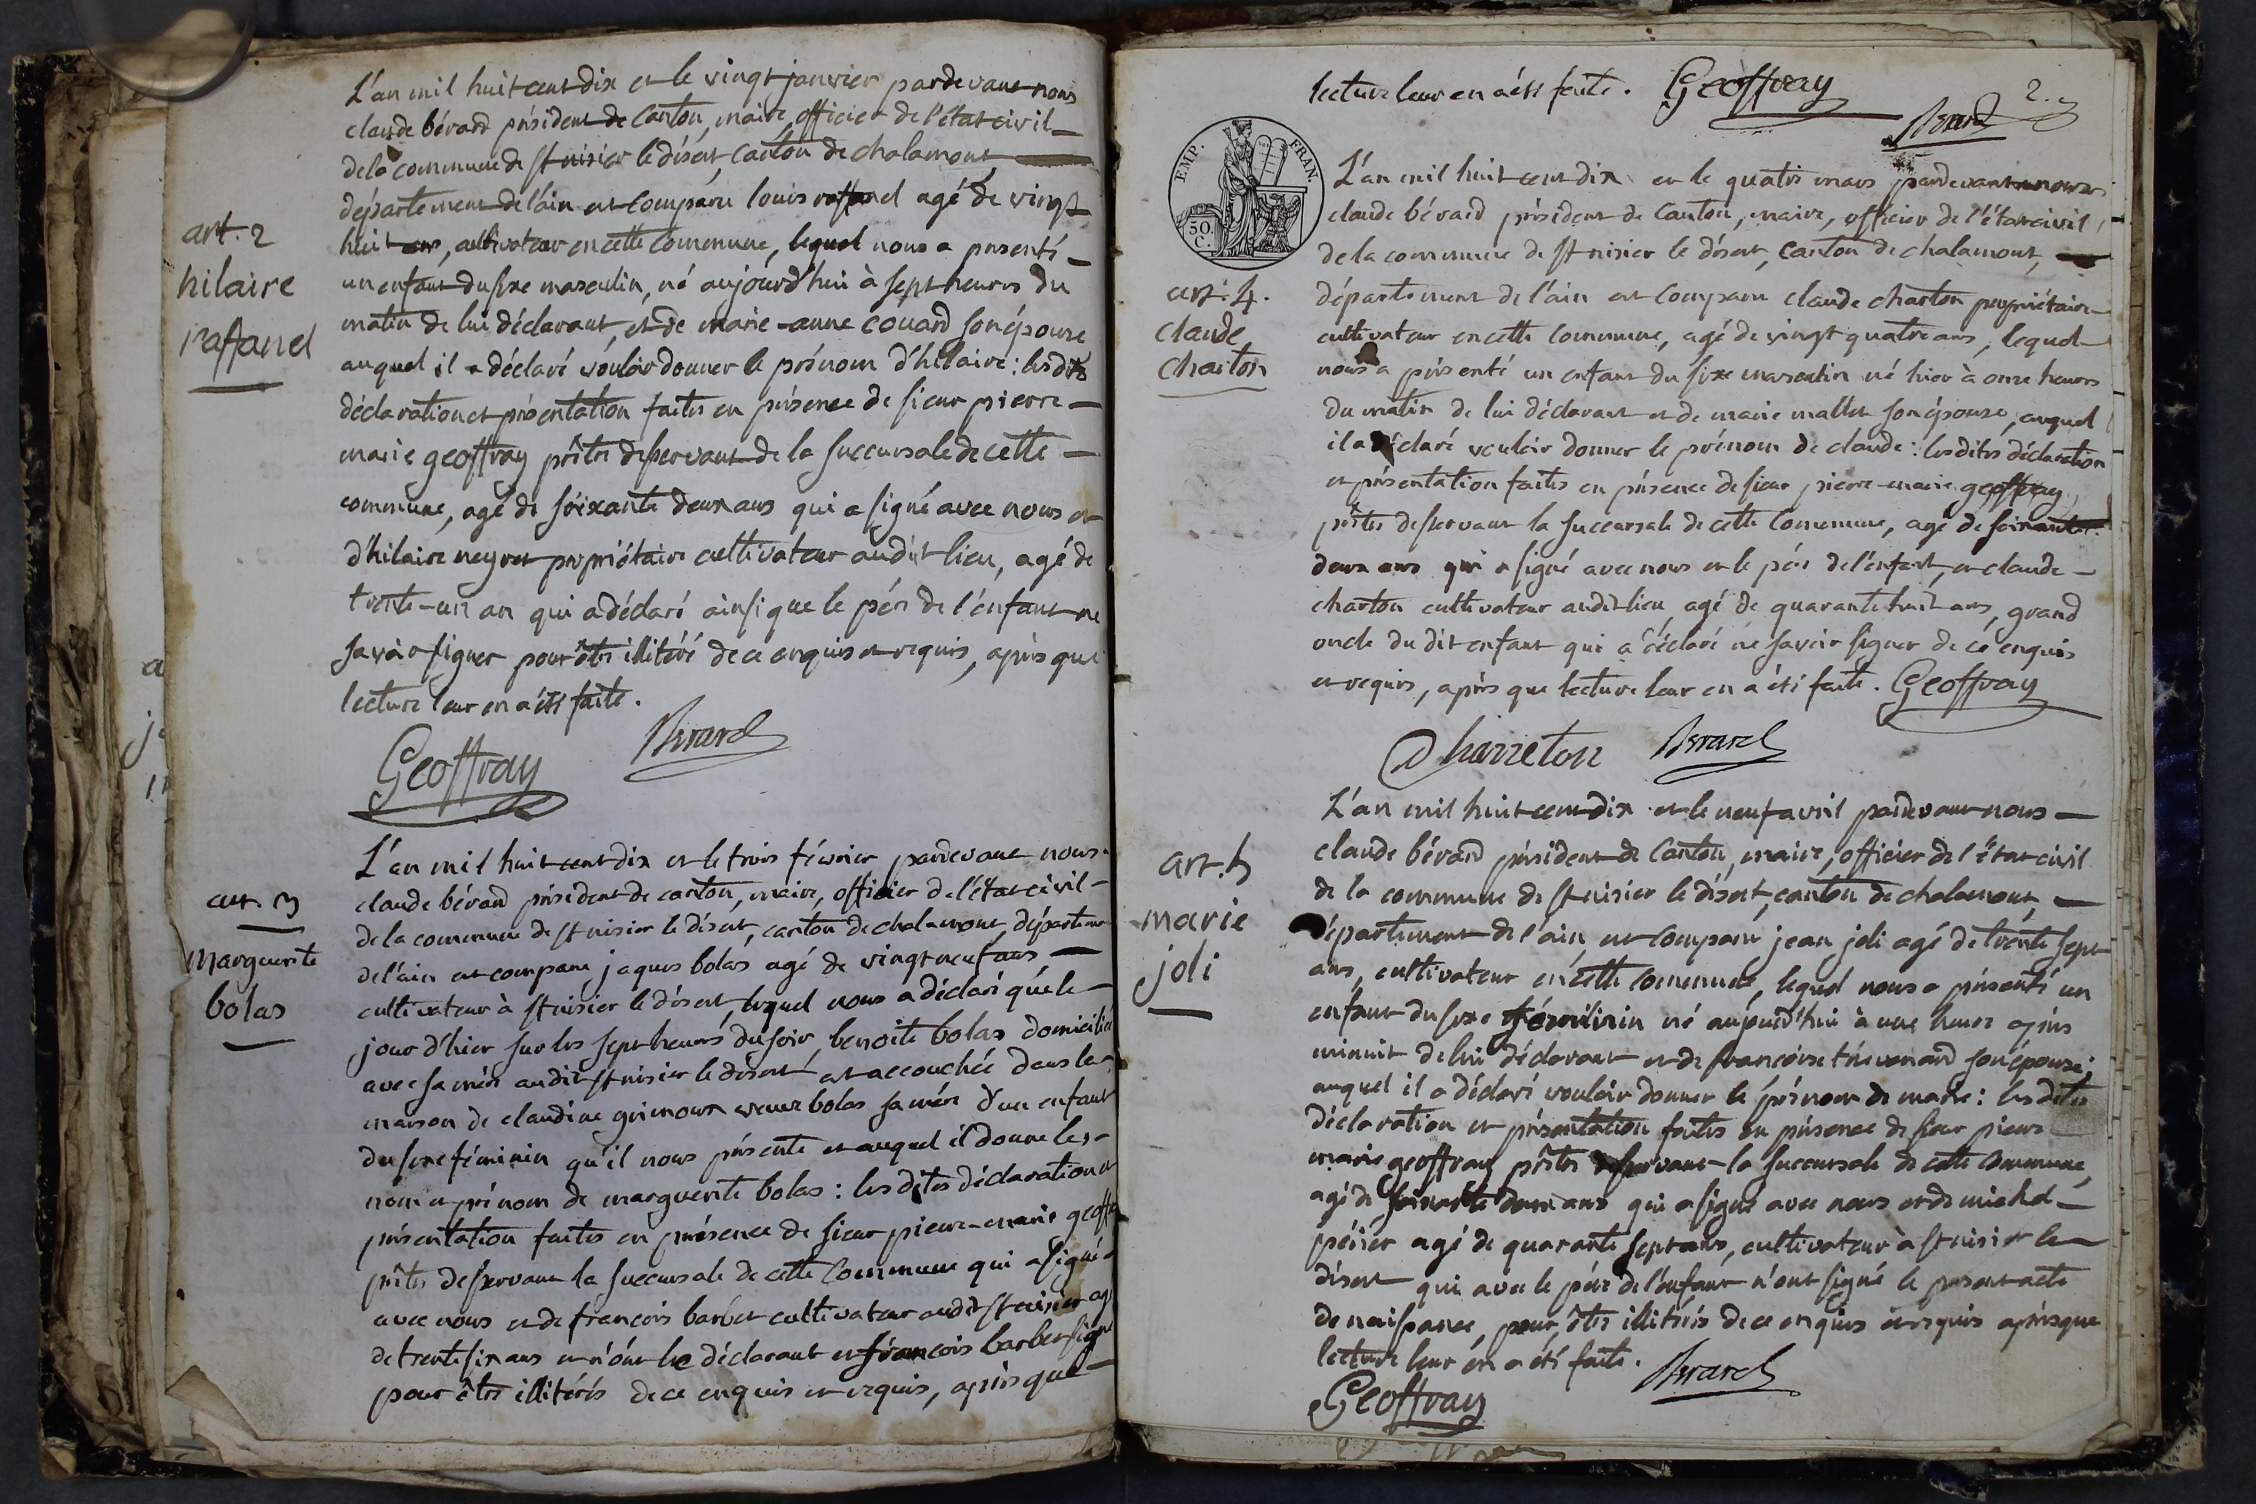 L'an mil huit cent dix et le vingt janvier pardevant nous
claude bérard président de Canton, maire, officier de l'état civil
de la commune de St nisier le désert, Canton de chalamont
département de l'ain est Comparu louis raffanel agé de vingt
art. 2
huit ans, cultivateur en cette Commune, lequel nous a présenté
hilaire
un enfant du sexe masculin, né aujourd'hui à sept heures du
raffanel
matin de lui déclarant, et de marie-anne couard son épouse
auquel il a déclaré vouloir donner le prénom d'hilaire : lesdites
déclaration et présentation faites en présence de sieur pierre
marie geoffray prêtre desservant de la succursale de cette
commune, agé de soixante deux ans qui a signé avec nous et
d'hilaire neyret propriétaire cultivateur audit lieu, agé de
trente-un an qui a déclaré ainsi que le père de l'enfant ne
savoir signer pour être illitéré de ce enquis et requis, après que
lecture leur en a été faite.
Geoffray Berard
L'an mil huit cent dix et le trois février pardevant nous
art. 3
claude bérard président de canton, maire, officier de l'état civil
de la commune de St nisier le désert, canton de chalamont, département
marguerite
de l'ain est comparu jaques bolas agé de vingt neuf ans
bolas
cultivateur à St nisier le désert, lequel nous a déclaré que le
jour d'hier sur les sept heures du soir, benoite bolas domiciliée
avec sa mère audit St nisier le désert est accouchée dans la
maison de claudine grimoux veuve bolas sa mère d'un enfant
du sexe féminin qu'il nous présente et auquel il donne les
nom et prénom de marguerite bolas : lesdites déclaration et
présentation faites en présence de sieur pierre-marie geoff
prêtre desservant la succursale de cette Commune qui a signé
avec nous et de françois barbet cultivateur audit St nisier agé
de trente six ans et n'ont le déclarant et françois barbet signé
pour être illitérés de ce enquis et requis, après que
lecture leur en a été faite. Geoffray
2.
Berard
EMP. FRAN.
50. C.
L'an mil huit cent dix et le quatre mars pardevant nous
claude bérard président de Canton, maire, officier de l'état civil
de la commune de St nisier le désert, Canton de chalamont,
art. 4.
département de l'ain est Comparu claude charton propriétaire
claude
cultivateur en cette Commune, agé de vingt quatre ans, lequel
charton
nous a présenté un enfant du sexe masculin né hier à onze heures
du matin de lui déclarant et de marie mallet son épouse, auquel
il a déclaré vouloir donner le prénom de claude : lesdites déclaration
et présentation faites en présence de sieur pierre-marie geoffray
prêtre desservant la succursale de cette Commune, agé de soixante
deux ans qui a signé avec nous et le père de l'enfant, et claude
charton cultivateur audit lieu, agé de quarante huit ans, grand
oncle du dit enfant qui a déclaré ne savoir signer de ce enquis
et requis, après que lecture leur en a été faite. Geoffray
Charreton Berard
L'an mil huit cent dix et le neuf avril pardevant nous
art. 5
claude bérard président de Canton, maire, officier de l'état civil
de la commune de St nisier le désert, canton de chalamont,
marie
département de l'ain est comparu jean joli agé de trente sept
joli
ans, cultivateur en cette commune, lequel nous a présenté un
enfant du sexe féminin né aujourd'hui à une heure après
minuit de lui déclarant et de françoise thévenard son épouse
auquel il a déclaré vouloir donner le prénom de marie : lesdites
déclaration et présentation faites en présence de sieur pierre
marie geoffray prêtre desservant la succursale de cette commune,
agé de soixante deux ans qui a signé avec nous et de michel
périer agé de quarante sept ans, cultivateur à St nisier le
désert qui avec le père de l'enfant n'ont signé le présent acte
de naissance, pour être illitérés de ce enquis et requis après que
lecture leur en a été faite. Berard
Geoffray